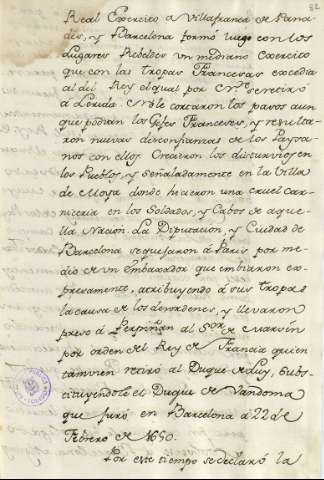 82
Real Exercito a Villafranca de Pana-
dés, y Barcelona formó luego con los
Lugares Rebeldes un mediano Exercito
que con las tropas Francesas excedia
al del Rey el qual por Enº se retiró
á Lerida. No le cortaron los pasos aun
que podian los Gefes Franceses, y resulta-
ron nuevas desconfianzas de los Paysa-
nos con ellos. Crecaron los disturvios en
los Pueblos, y Señaladamente en la Villa
de Moya donde hicieron una cruel car-
niceria en los Soldados, y Cabos de aque-
lla Nación. La Diputacion, y Ciudad de
Barcelona se quejaron á Paris por me-
dio de un Embaxador que embiaron ex-
presamente, atribuyendo á sus tropas
la causa de los desordenes, y llevaron
preso á Perpiñan al Sor. de Marsin
por orden del Rey de Francia quien
tamvien retiró al Duque de Luy, subs-
tituyendole el Duque de Vandoma
que juró en Barcelona á 22 de
Febrero de 1650.
Por este tiempo se declaró la